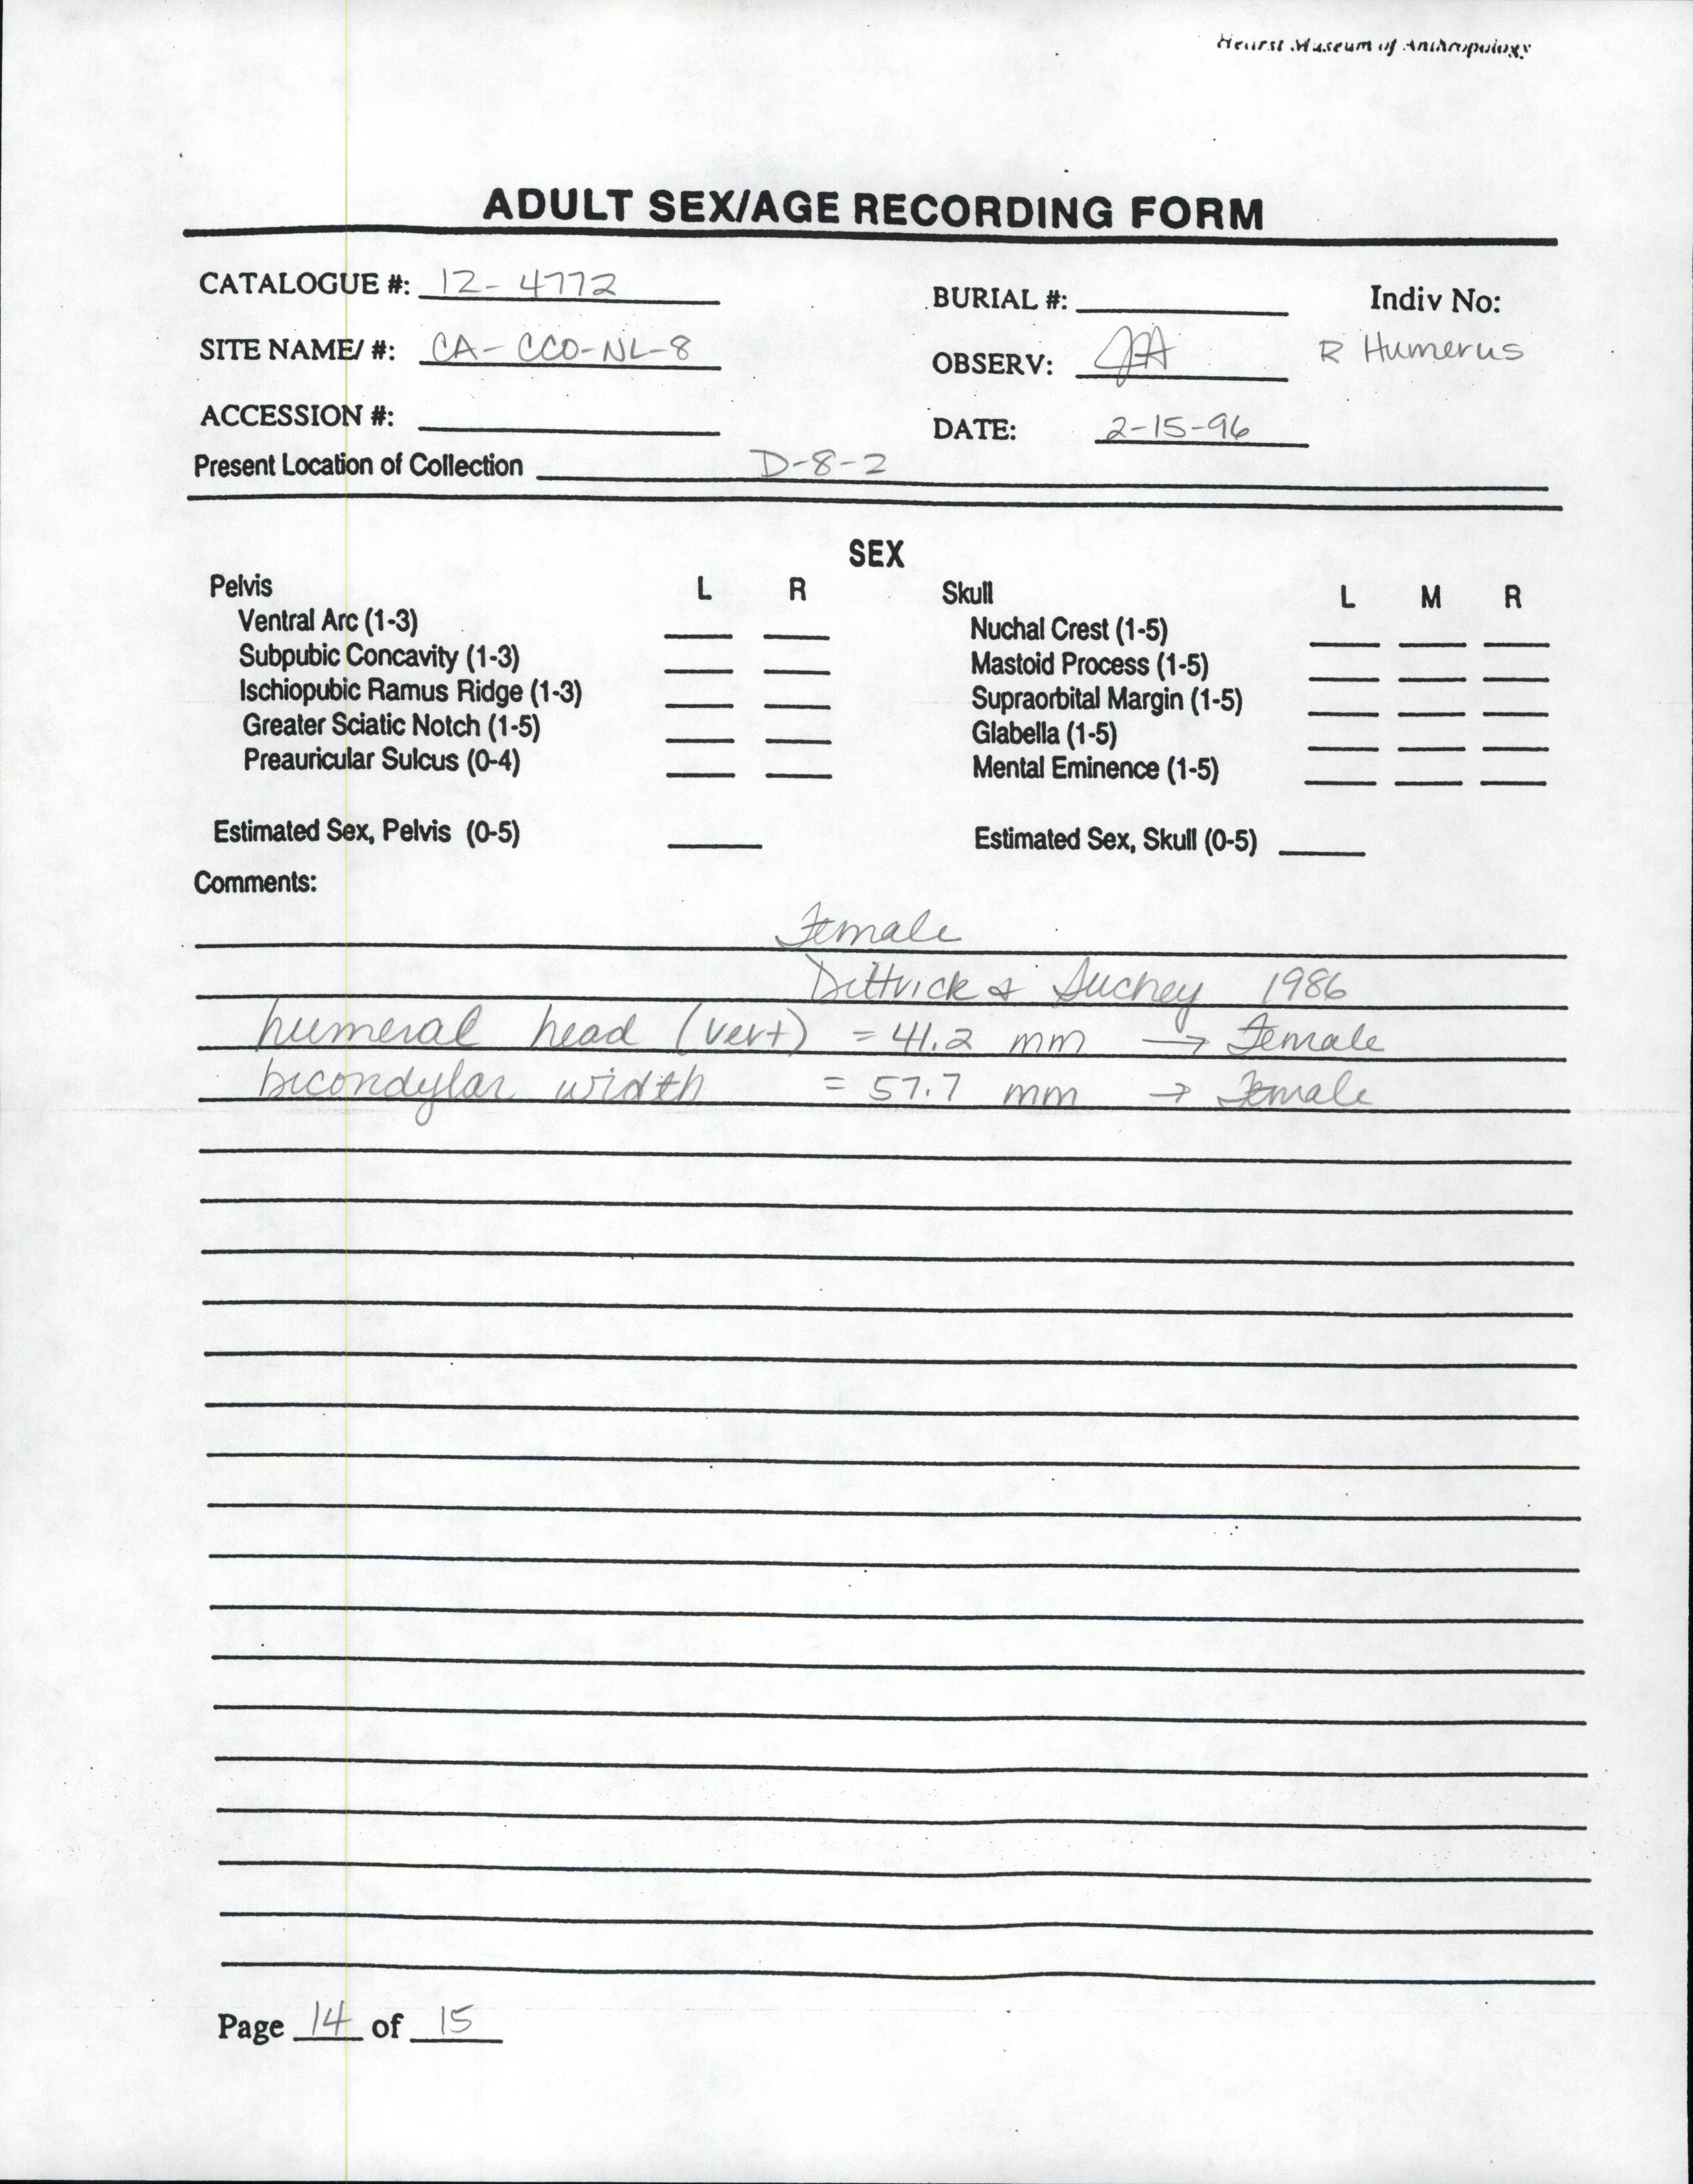 Hearst Museum of Anthropology
ADULT SEX/AGE RECORDING FORM
CATALOGUE #: 12-4772
BURIAL #: Indiv No:
SITE NAME/ #: CA-CCO-NL-8
OBSERV: JA R Humerus
ACCESSION #:
DATE: 2-15-96
Present Location of Collection D-8-2
SEX
Pelvis L R
Ventral Arc (1-3)
Subpubic Concavity (1-3)
Ischiopubic Ramus Ridge (1-3)
Greater Sciatic Notch (1-5)
Preauricular Sulcus (0-4)
Estimated Sex, Pelvis (0-5)
Skull L M R
Nuchal Crest (1-5)
Mastoid Process (1-5)
Supraorbital Margin (1-5)
Glabella (1-5)
Mental Eminence (1-5)
Estimated Sex, Skull (0-5)
Comments:
Female
Dittrick & Suchey 1986
humeral head (vert) = 41.2 mm → Female
bicondylar width = 57.7 mm → Female
Page 14 of 15